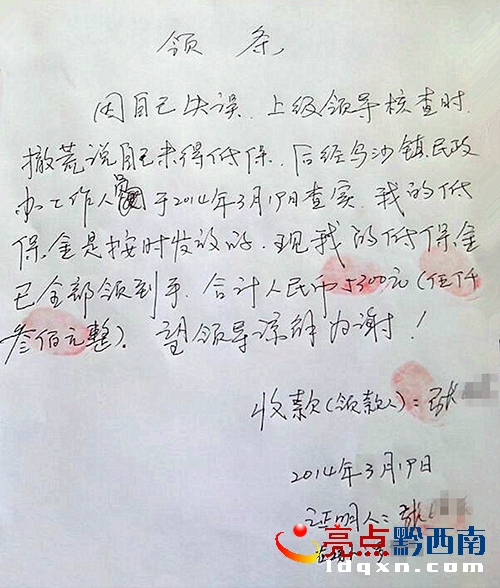 领条
因自己失误、上级领导核查时、
撤荒说自己未得低保、后经乌沙镇民政
办工作人员于2014年3月19日查实、我的低
保金是按时发放的、现我的低保金
已全部领到手、合计人民币5300元(伍仟
叁佰元整)、望领导谅解为谢!
收款(领款人):张
2014年3月19日
证明人:张
亮点黔西南
ldqxn.com